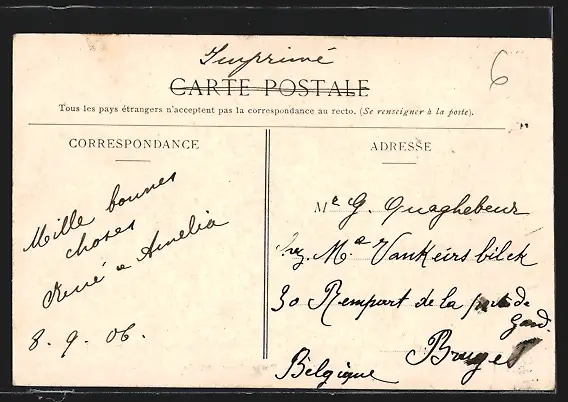 Imprimé
CARTE POSTALE
Tous les pays étrangers n'acceptent pas la correspondance au recto. (Se renseigner à la poste).
6
CORRESPONDANCE
Mille bonnes
choses
René & Amelia
8. 9. 06.
ADRESSE
Me G. Quaghebeur
chez. Ma Vankeirsbilck
30 Rempart de la porte de
Gand.
Bruges
Belgique